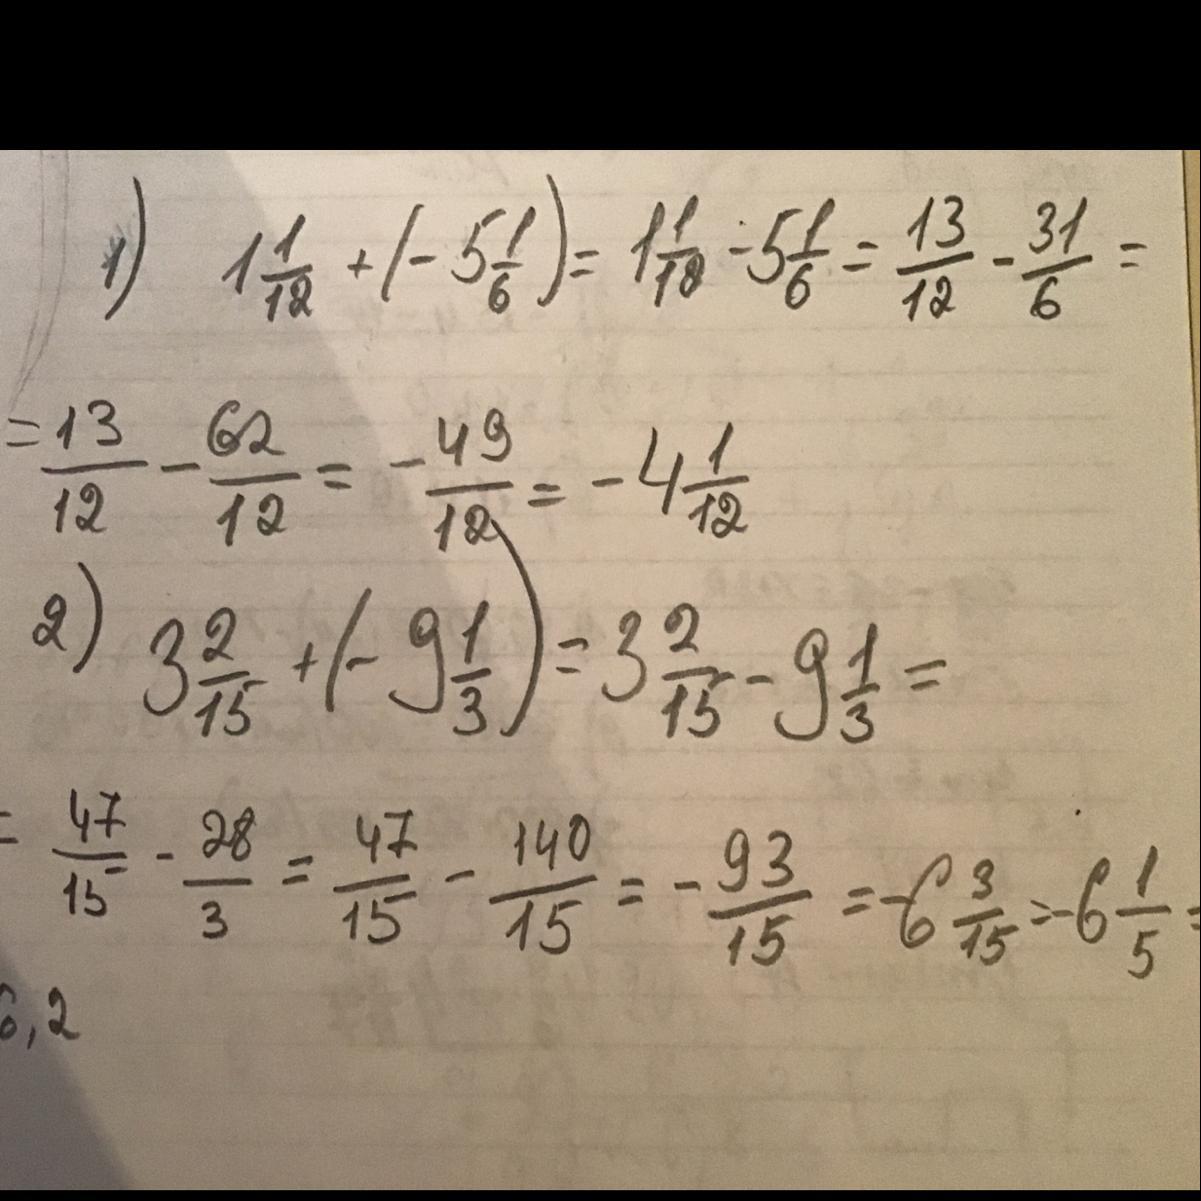 1) 1 1/12 + (- 5 1/6) = 1 1/12 - 5 1/6 = 13/12 - 31/6 =
= 13/12 - 62/12 = - 49/12 = - 4 1/12
2) 3 2/15 + (- 9 1/3) = 3 2/15 - 9 1/3 =
= 47/15 - 28/3 = 47/15 - 140/15 = - 93/15 = -6 3/15 = -6 1/5 =
6,2